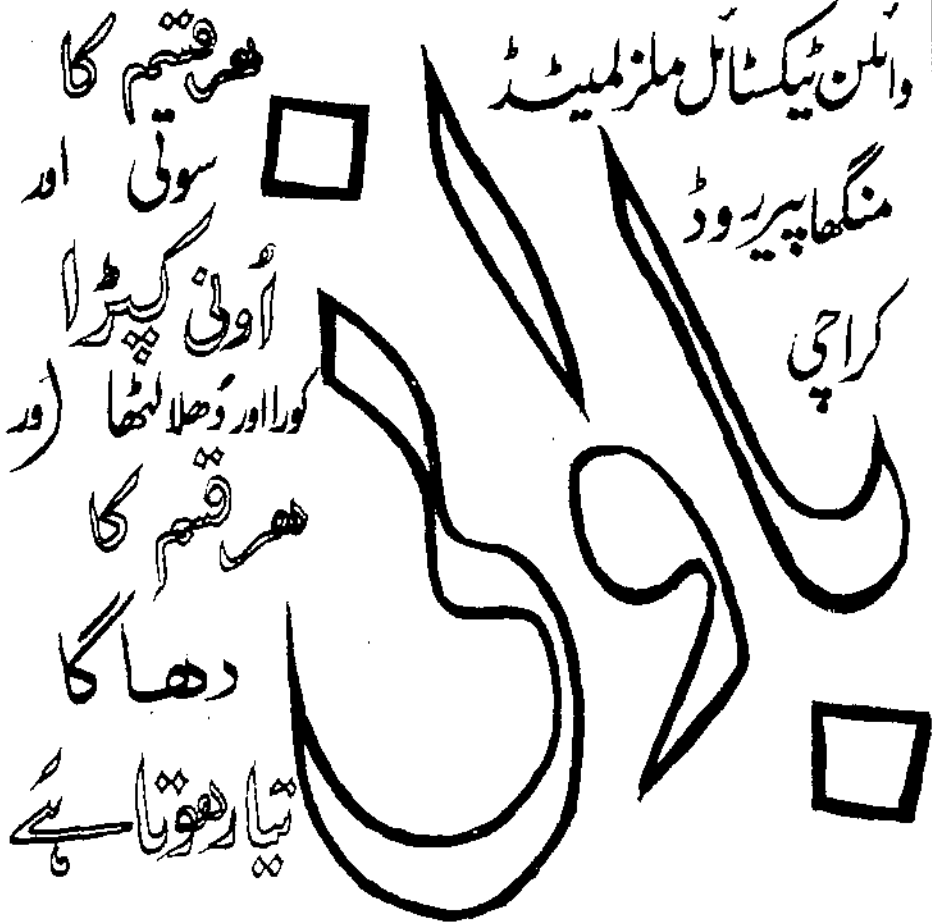 باوانی
وائلن ٹیکسٹائل ملز لمیٹڈ
منگھاپیر روڈ
کراچی
ھر قسم کا
سوتی اور
اُونی کپڑا
کورا اور دُھلا لٹھا اور
ھر قسم کا
دھاگا
تیار ھوتا ہے